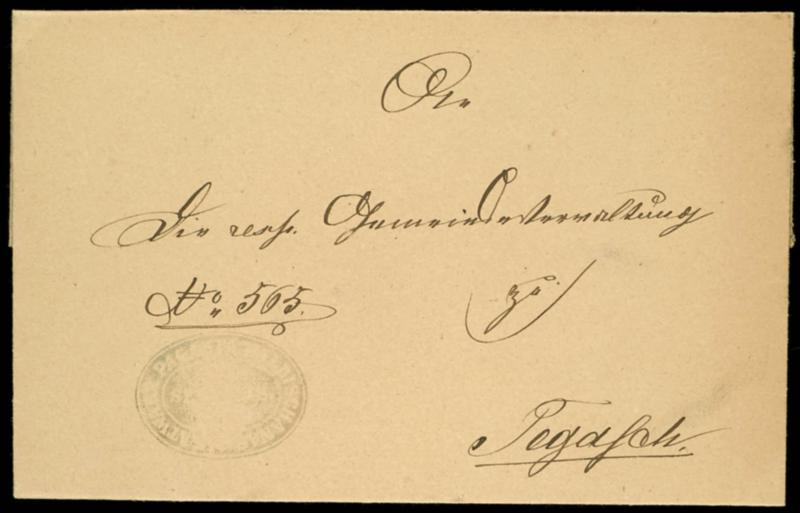 An
Die resp. Gemeindeverwaltung
No. 565.
zu
Pegasch.